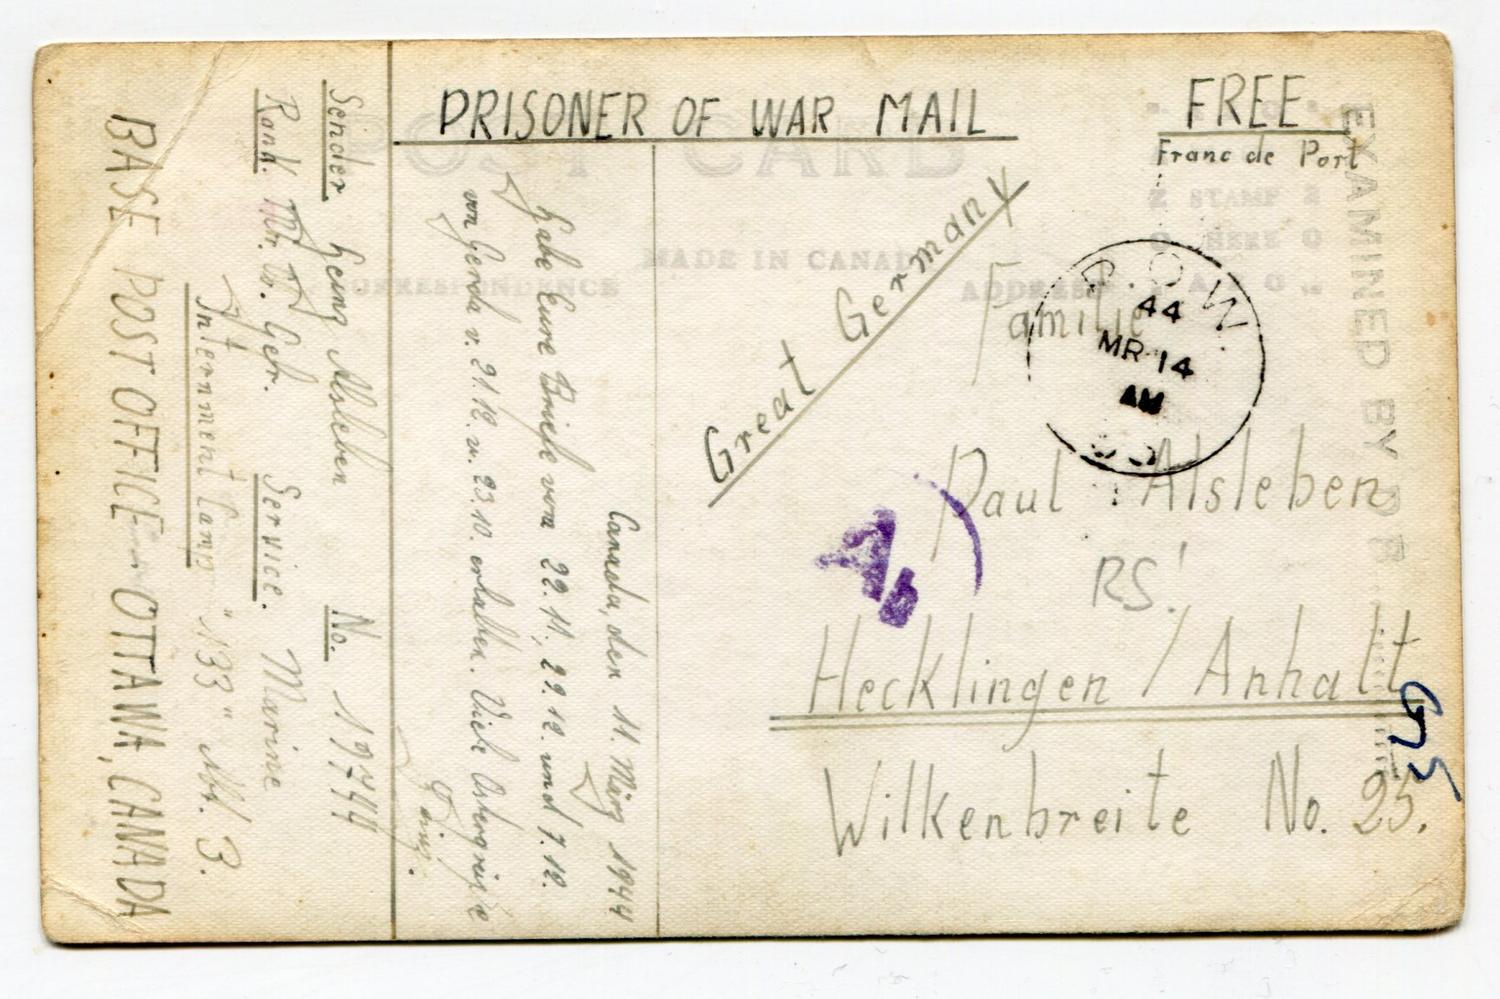 PRISONER OF WAR MAIL
FREE
Franc de Port
POST CARD
MADE IN CANADA
CORRESPONDENCE
ADDRESS
STAMP
HERE
EXAMINED BY D.B.
P.O.W.
44
MR 14
AM
Great Germany
Familie
Paul Alsleben
RS!
Hecklingen / Anhalt
Wilkenbreite No. 25.
Canada, den 11. März 1944
Habe Eure Briefe vom 22.11., 29.12. und 7.12.
von Gerda v. 21.12. u. 23.10. erhalten. Viele Ostergrüße
Heinz.
Sender Heinz Alsleben No. 19744
Rank. Mr. Gefr. Service. Marine
Internment Camp "133" Abt. 3.
BASE POST OFFICE - OTTAWA, CANADA